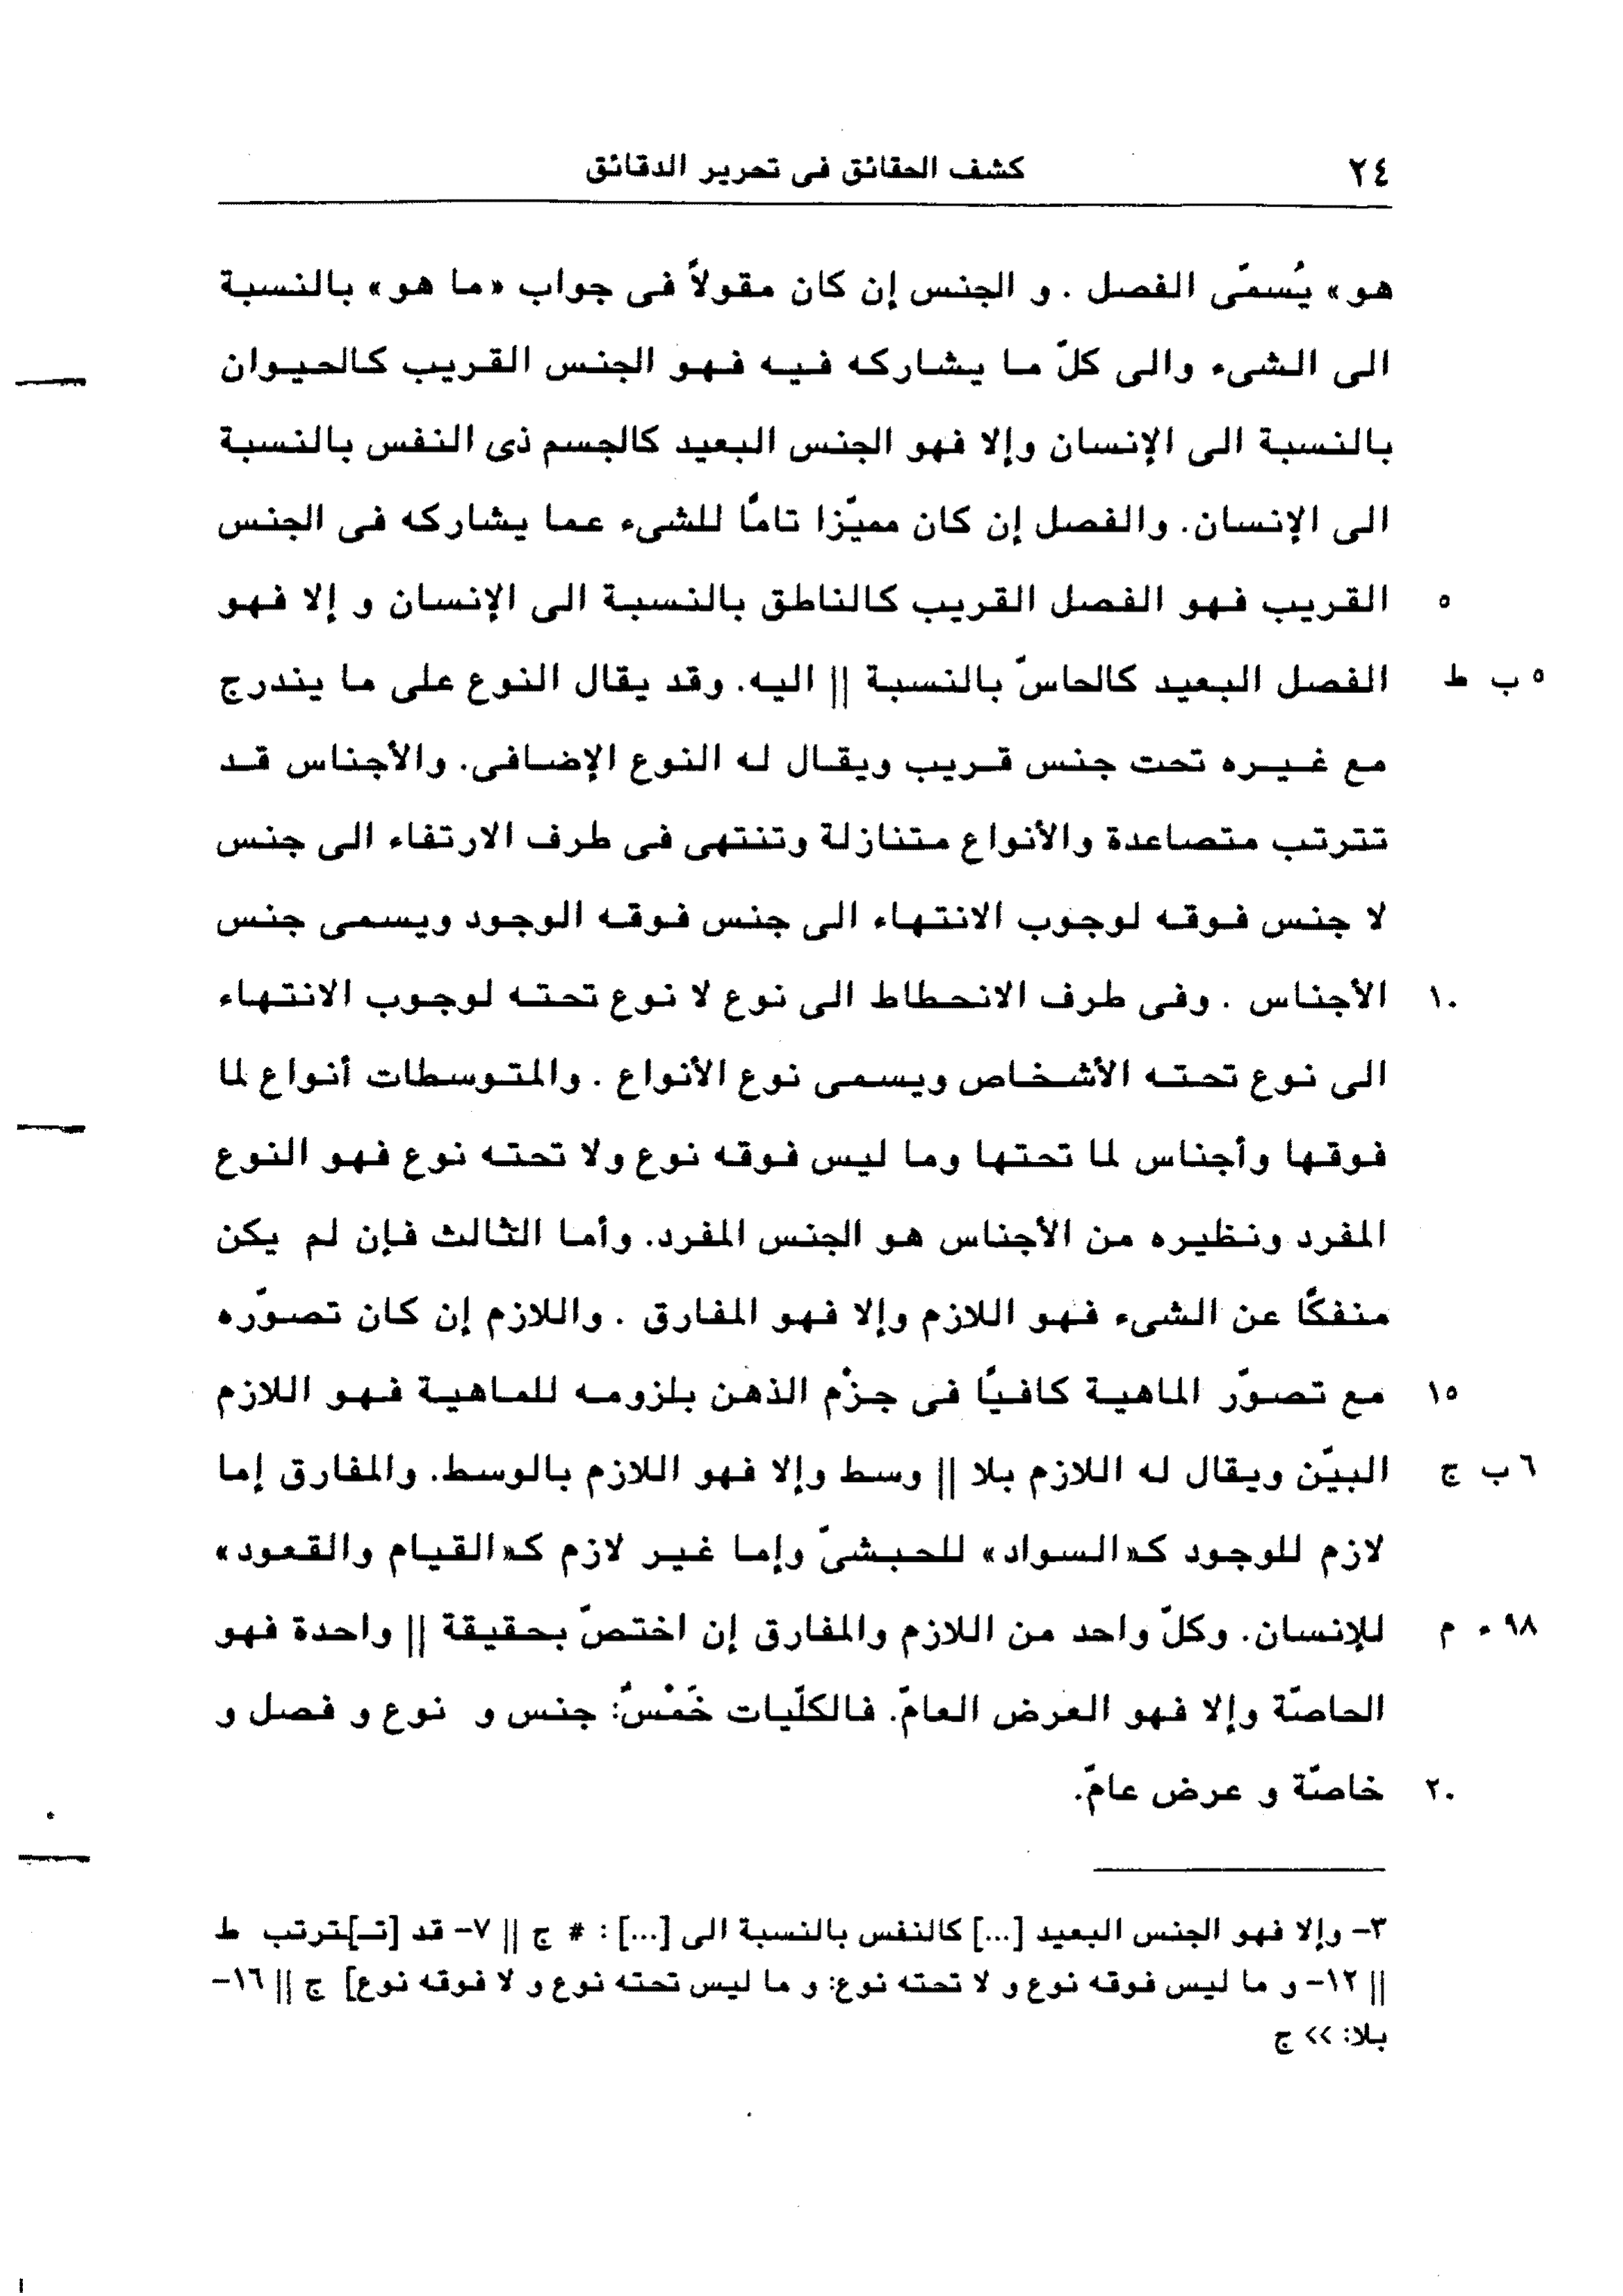 ٢٤ كشف الحقائق فى تحرير الدقائق
هو» يُسمّى الفصل . و الجنس إن كان مقولاً فى جواب «ما هو» بالنسبة
الى الشىء والى كلّ ما يشاركه فيه فهو الجنس القريب كالحيوان
بالنسبة الى الإنسان وإلا فهو الجنس البعيد كالجسم ذى النفس بالنسبة
الى الإنسان. والفصل إن كان مميّزا تامًا للشىء عما يشاركه فى الجنس
٥ القريب فهو الفصل القريب كالناطق بالنسبة الى الإنسان و إلا فهو
٥ ب ط الفصل البعيد كالحاسّ بالنسبة || اليه. وقد يقال النوع على ما يندرج
مع غيره تحت جنس قريب ويقال له النوع الإضافى. والأجناس قد
تترتب متصاعدة والأنواع متنازلة وتنتهى فى طرف الارتفاء الى جنس
لا جنس فوقه لوجوب الانتهاء الى جنس فوقه الوجود ويسمى جنس
١٠ الأجناس . وفى طرف الانحطاط الى نوع لا نوع تحته لوجوب الانتهاء
الى نوع تحته الأشخاص ويسمى نوع الأنواع . والمتوسطات أنواع لما
فوقها وأجناس لما تحتها وما ليس فوقه نوع ولا تحته نوع فهو النوع
المفرد ونظيره من الأجناس هو الجنس المفرد. وأما الثالث فإن لم يكن
منفكًا عن الشىء فهو اللازم وإلا فهو المفارق . واللازم إن كان تصوّره
١٥ مع تصوّر الماهية كافيًا فى جزْم الذهن بلزومه للماهية فهو اللازم
٦ ب ج البيّن ويقال له اللازم بلا || وسط وإلا فهو اللازم بالوسط. والمفارق إما
لازم للوجود كـ«السواد» للحبشىّ وإما غير لازم كـ«القيام والقعود»
٩٨ ء م للإنسان. وكلّ واحد من اللازم والمفارق إن اختصّ بحقيقة || واحدة فهو
الحاصّة وإلا فهو العرض العامّ. فالكلّيات خَمْسٌ: جنس و نوع و فصل و
٢٠ خاصّة و عرض عامّ.
٣- وإلا فهو الجنس البعيد [...] كالنفس بالنسبة الى [...] : # ج || ٧- قد [تـ]ـترتب ط
|| ١٢- و ما ليس فوقه نوع و لا تحته نوع: و ما ليس تحته نوع و لا فوقه نوع] ج || ١٦-
بلا: >> ج